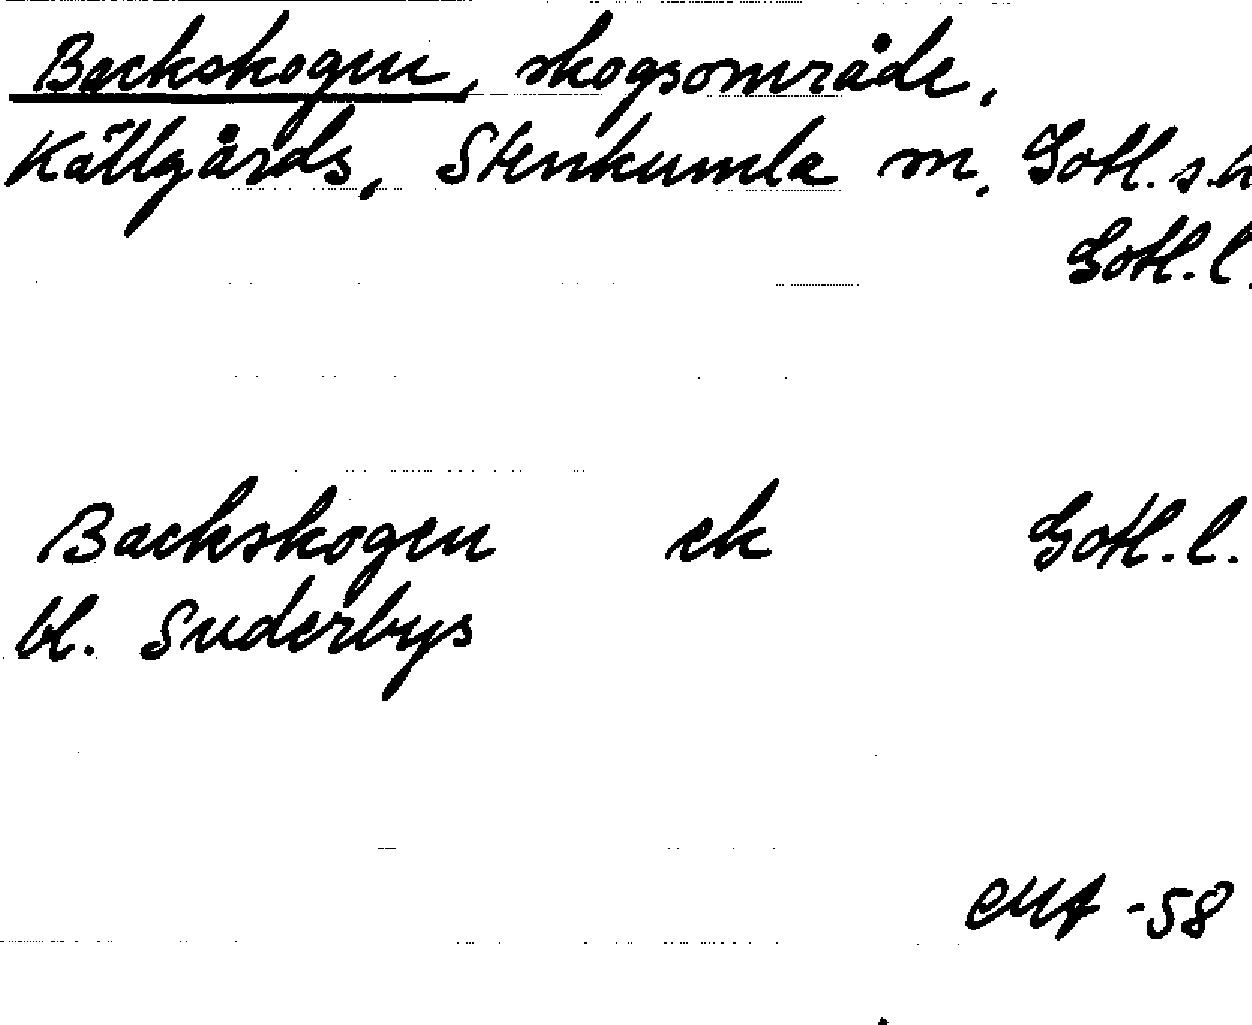 Backskogen, skogsområde,
Källgårds, Stenkumla sn. Gotl. s. h
Gotl. l.
Backskogen ek Gotl. l.
bl. Suderbys
-58